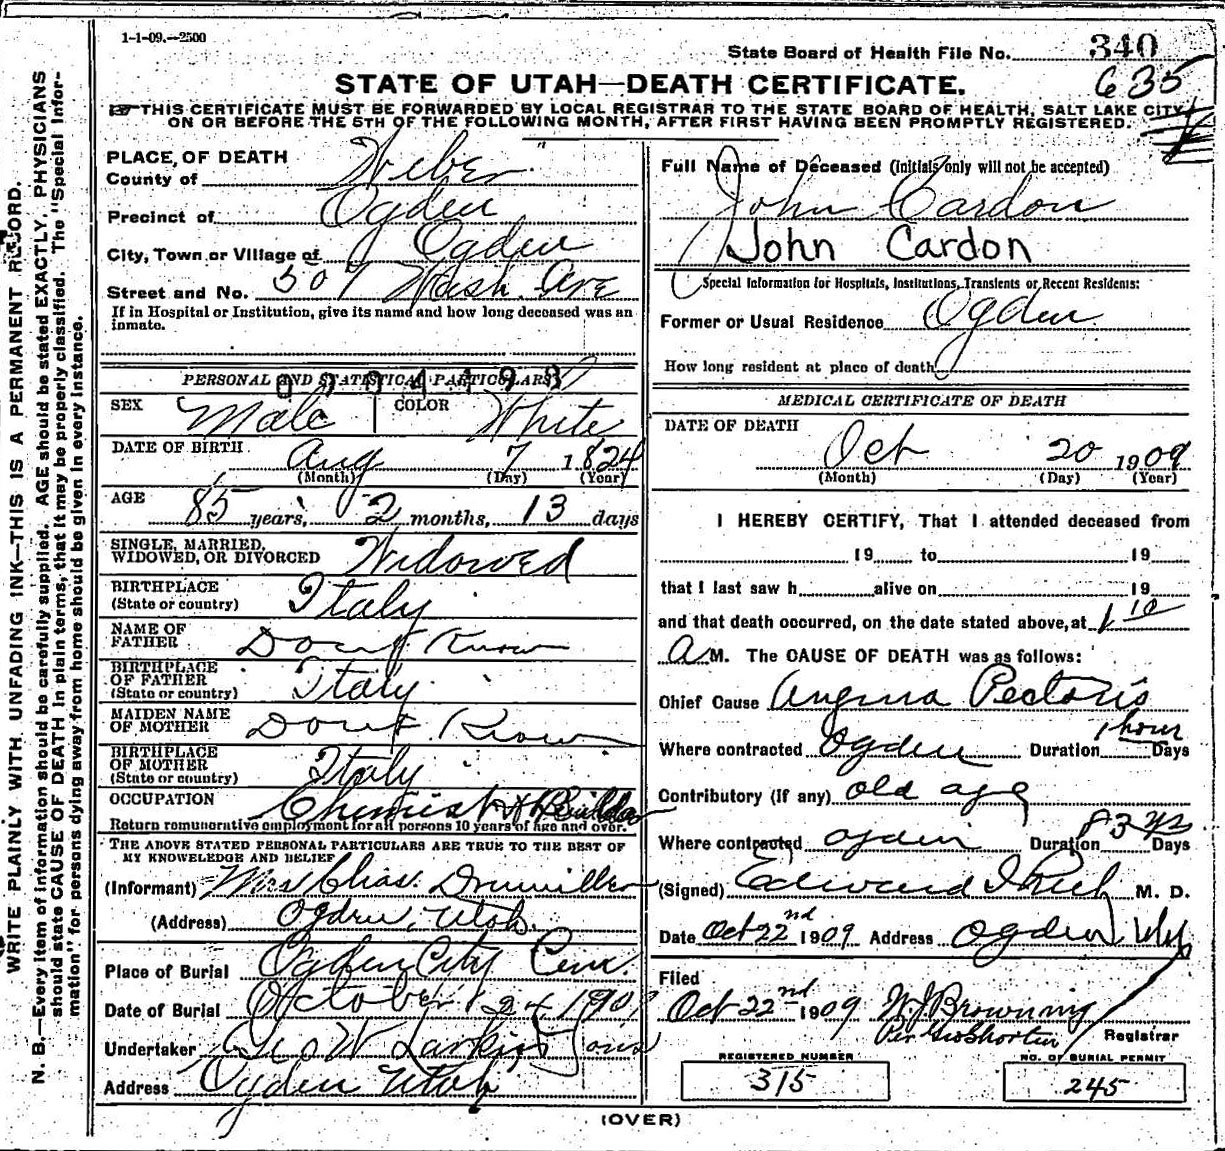 1-1-09.--2500
State Board of Health File No. 340
635
STATE OF UTAH—DEATH CERTIFICATE.
THIS CERTIFICATE MUST BE FORWARDED BY LOCAL REGISTRAR TO THE STATE BOARD OF HEALTH, SALT LAKE CITY,
ON OR BEFORE THE 5TH OF THE FOLLOWING MONTH, AFTER FIRST HAVING BEEN PROMPTLY REGISTERED.
WRITE PLAINLY WITH UNFADING INK—THIS IS A PERMANENT RECORD.
N. B.—Every item of information should be carefully supplied. AGE should be stated EXACTLY. PHYSICIANS
should state CAUSE OF DEATH in plain terms, that it may be properly classified. The "Special Infor-
mation" for persons dying away from home should be given in every instance.
PLACE OF DEATH
County of Weber
Precinct of Ogden
City, Town or Village of Ogden
Street and No. 507 Wash. Ave
If in Hospital or Institution, give its name and how long deceased was an
inmate.
PERSONAL AND STATISTICAL PARTICULARS
SEX Male COLOR White
DATE OF BIRTH Aug 7 1824
(Month) (Day) (Year)
AGE 85 years, 2 months, 13 days
SINGLE, MARRIED,
WIDOWED, OR DIVORCED Widowed
BIRTHPLACE
(State or country) Italy
NAME OF
FATHER Dont Know
BIRTHPLACE
OF FATHER
(State or country) Italy
MAIDEN NAME
OF MOTHER Dont Know
BIRTHPLACE
OF MOTHER
(State or country) Italy
OCCUPATION Chemist
Return remunerative employment for all persons 10 years of age and over.
THE ABOVE STATED PERSONAL PARTICULARS ARE TRUE TO THE BEST OF
MY KNOWLEDGE AND BELIEF
(Informant) Mrs Chas.
(Address) Ogden, Utah.
Place of Burial Ogden City Cem.
Date of Burial October 24 1909
Undertaker Geo W Larkin
Address Ogden Utah
Full Name of Deceased (initials only will not be accepted)
John Cardon
John Cardon
Special Information for Hospitals, Institutions, Transients or Recent Residents:
Former or Usual Residence Ogden
How long resident at place of death
MEDICAL CERTIFICATE OF DEATH
DATE OF DEATH
Oct 20 1909
(Month) (Day) (Year)
I HEREBY CERTIFY, That I attended deceased from
19 to 19
that I last saw h alive on 19
and that death occurred, on the date stated above, at 1 10
A M. The CAUSE OF DEATH was as follows:
Chief Cause Angina Pectoris
Where contracted Ogden Duration 1 hour Days
Contributory (If any) old age
Where contracted Ogden Duration 83 ys Days
(Signed) Edward I Rich M. D.
Date Oct 22nd 1909 Address Ogden Utah
Filed
Oct 22nd 1909 W J Browning
Per Geo Shorten Registrar
REGISTERED NUMBER
315
NO. OF BURIAL PERMIT
245
(OVER)